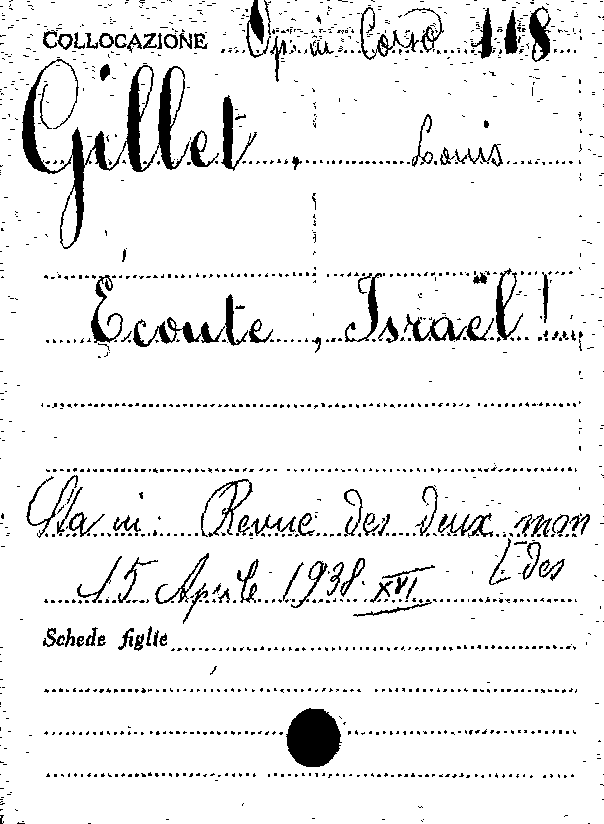 COLLOCAZIONE Op. in Corso 118
Gillet, Louis
Écoute, Israël!
Sta in: Revue des deux mon
des
15 Aprile 1938 XVI
Schede figlie